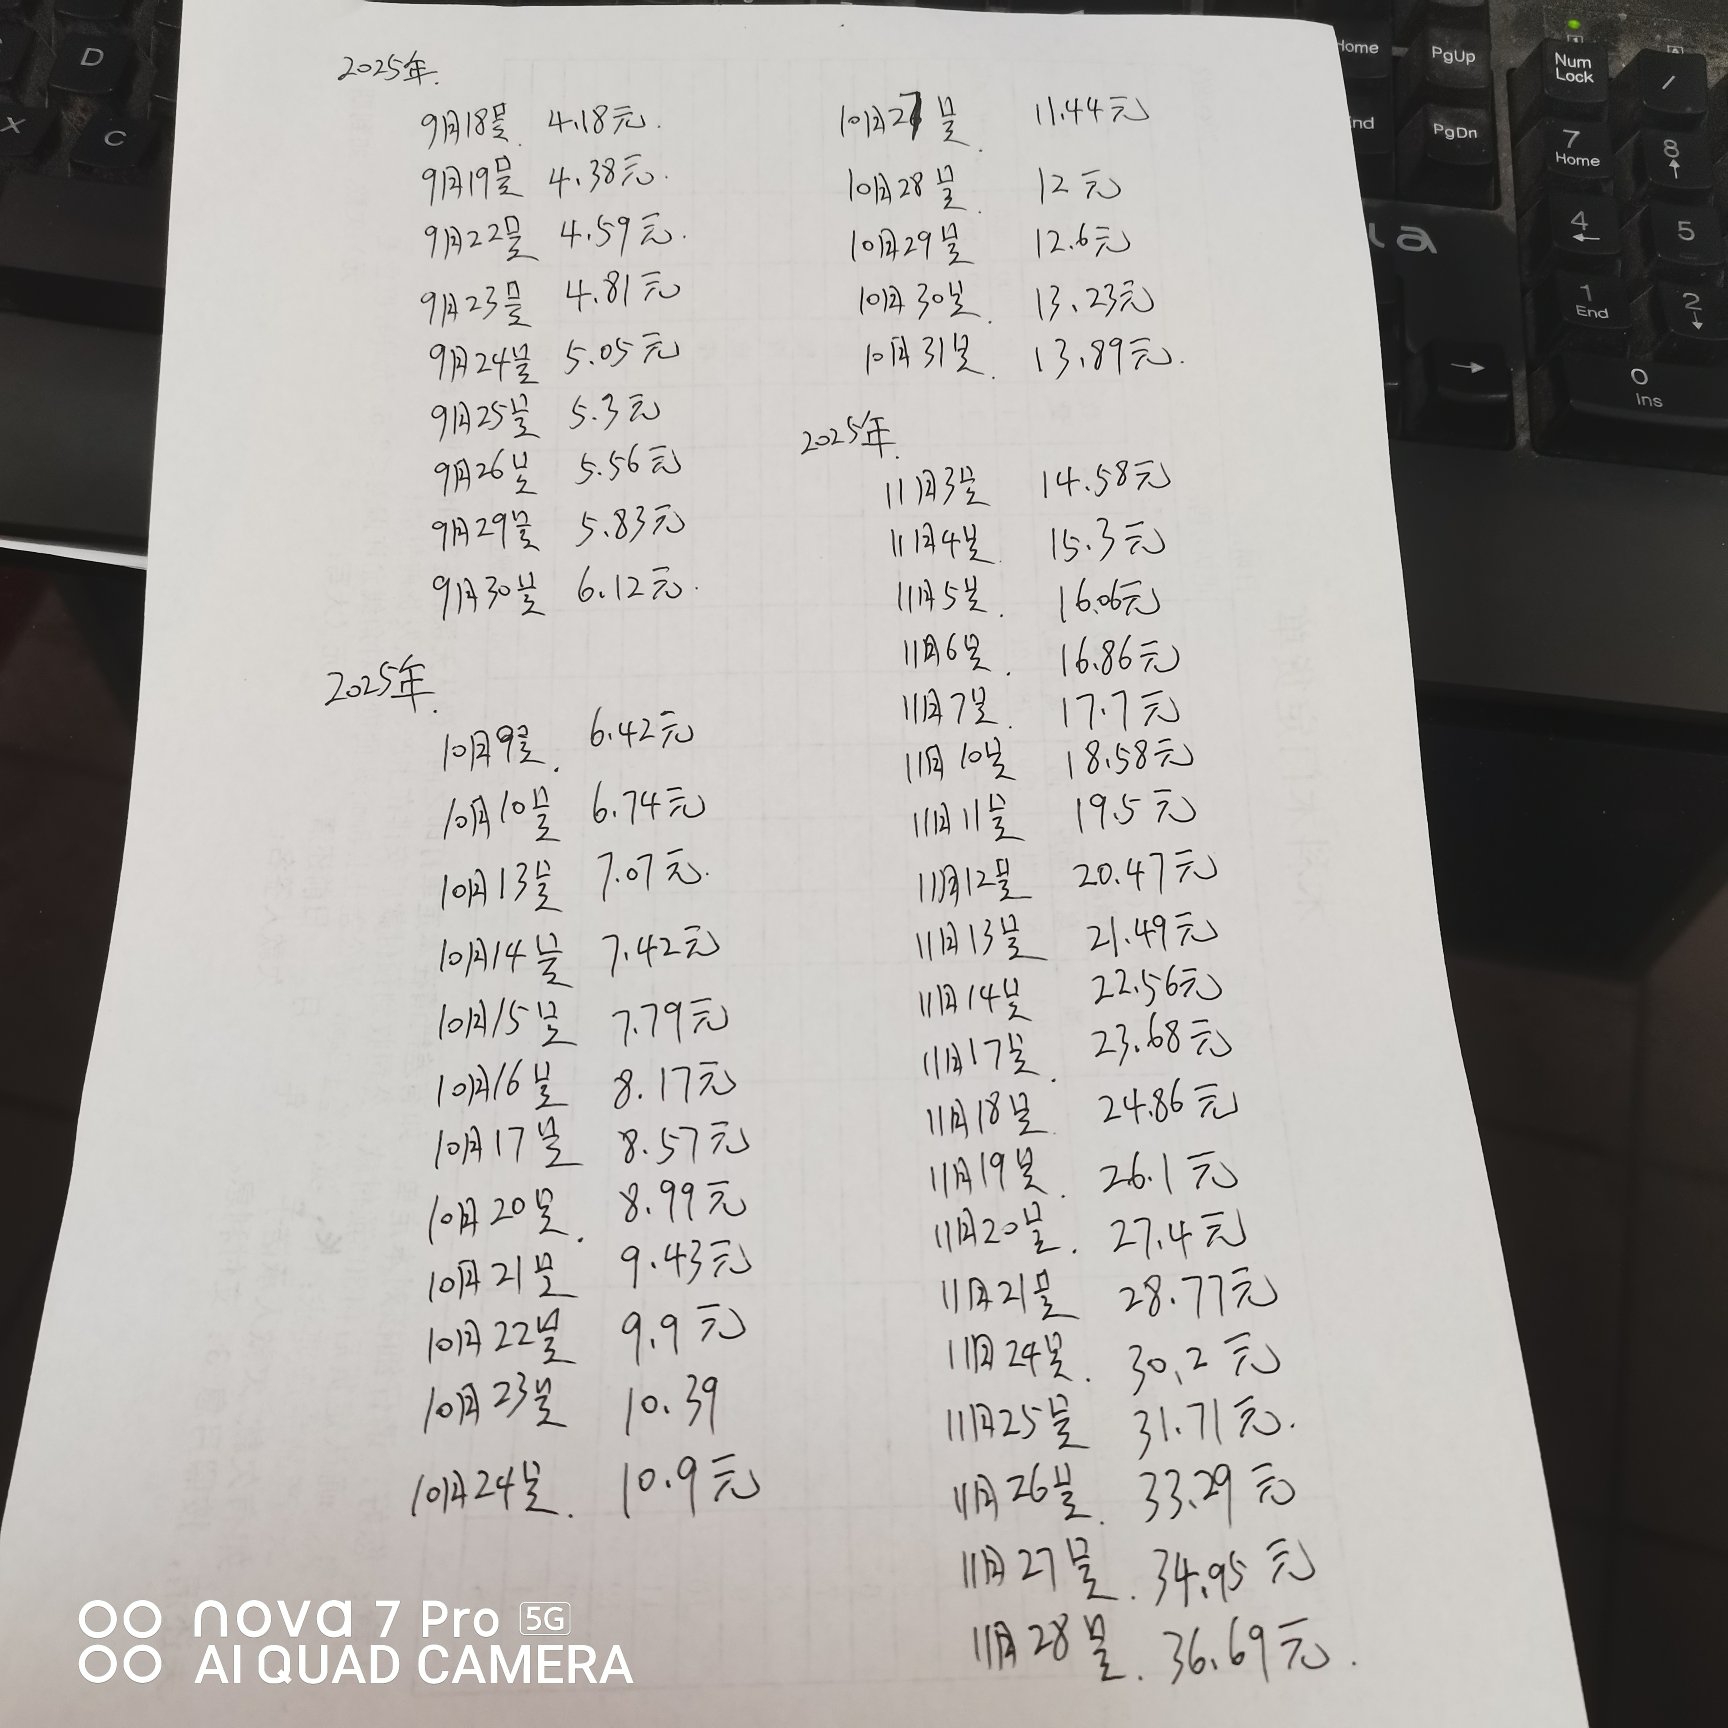 2025年.
9月18号. 4.18元.
9月19号 4.38元.
9月22号 4.59元.
9月23号 4.81元
9月24号 5.05元
9月25号 5.3元
9月26号 5.56元
9月29号 5.83元
9月30号 6.12元.
2025年.
10月9号. 6.42元
10月10号 6.74元
10月13号 7.07元.
10月14号 7.42元
10月15号 7.79元
10月16号 8.17元
10月17号 8.57元
10月20号. 8.99元
10月21号 9.43元
10月22号 9.9元
10月23号 10.39
10月24号. 10.9元
10月27号. 11.44元
10月28号. 12元
10月29号 12.6元
10月30号. 13.23元
10月31号. 13.89元.
2025年.
11月3号 14.58元
11月4号. 15.3元
11月5号. 16.06元
11月6号. 16.86元
11月7号. 17.7元
11月10号 18.58元
11月11号 19.5元
11月12号 20.47元
11月13号 21.49元
11月14号 22.56元
11月17号. 23.68元
11月18号. 24.86元
11月19号. 26.1元
11月20号. 27.4元
11月21号 28.77元
11月24号. 30.2元
11月25号 31.71元.
11月26号. 33.29元
11月27号. 34.95元
11月28号. 36.69元.
nova 7 Pro 5G
AI QUAD CAMERA
D
X
C
Home
PgUp
PgDn
Num
Lock
/
7
Home
8
4
5
1
End
2
0
Ins